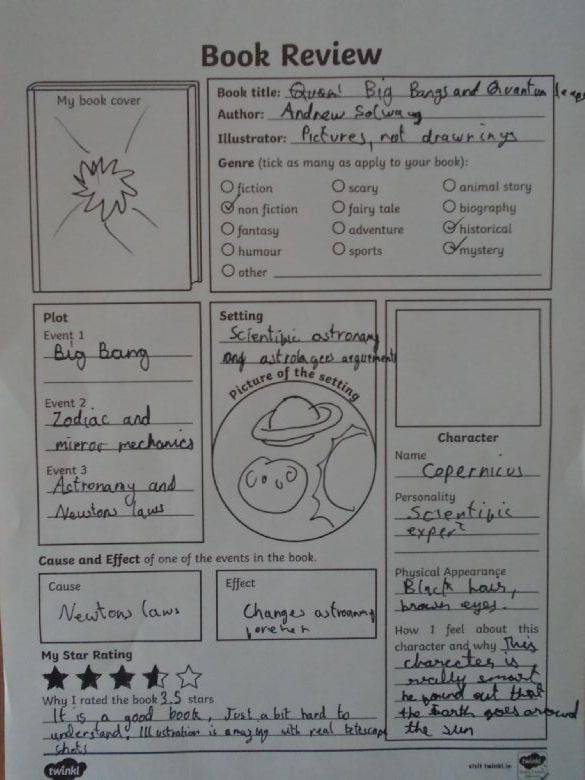 Book Review
My book cover
Book title: Big Bangs and Quantum leaps
Author: Andrew Solway
Illustrator: Pictures, not drawrings
Genre (tick as many as apply to your book):
fiction scary animal story
non fiction fairy tale biography
fantasy adventure historical
humour sports mystery
other
Plot
Event 1
Big Bang
Event 2
Zodiac and
mirror mechanics
Event 3
Actronamy and
Newtons laws
Setting
Scientific astronamy
and astrolagers argurments
Picture of the setting
Character
Name
Copernicus
Personality
Scientific
expert
Physical Appearance
Black hair,
brown eyes.
How I feel about this
character and why This
charecter is
really smart
he found out that
the Earth goes around
the sun
Cause and Effect of one of the events in the book.
Cause
Newtons laws
Effect
Changes astronamy
forever
My Star Rating
Why I rated the book 3.5 stars
It is a good book, Just a bit hard to
understand. Illustration is amazing with real telescope
shots
twinkl
visit twinkl.ie
twinkl